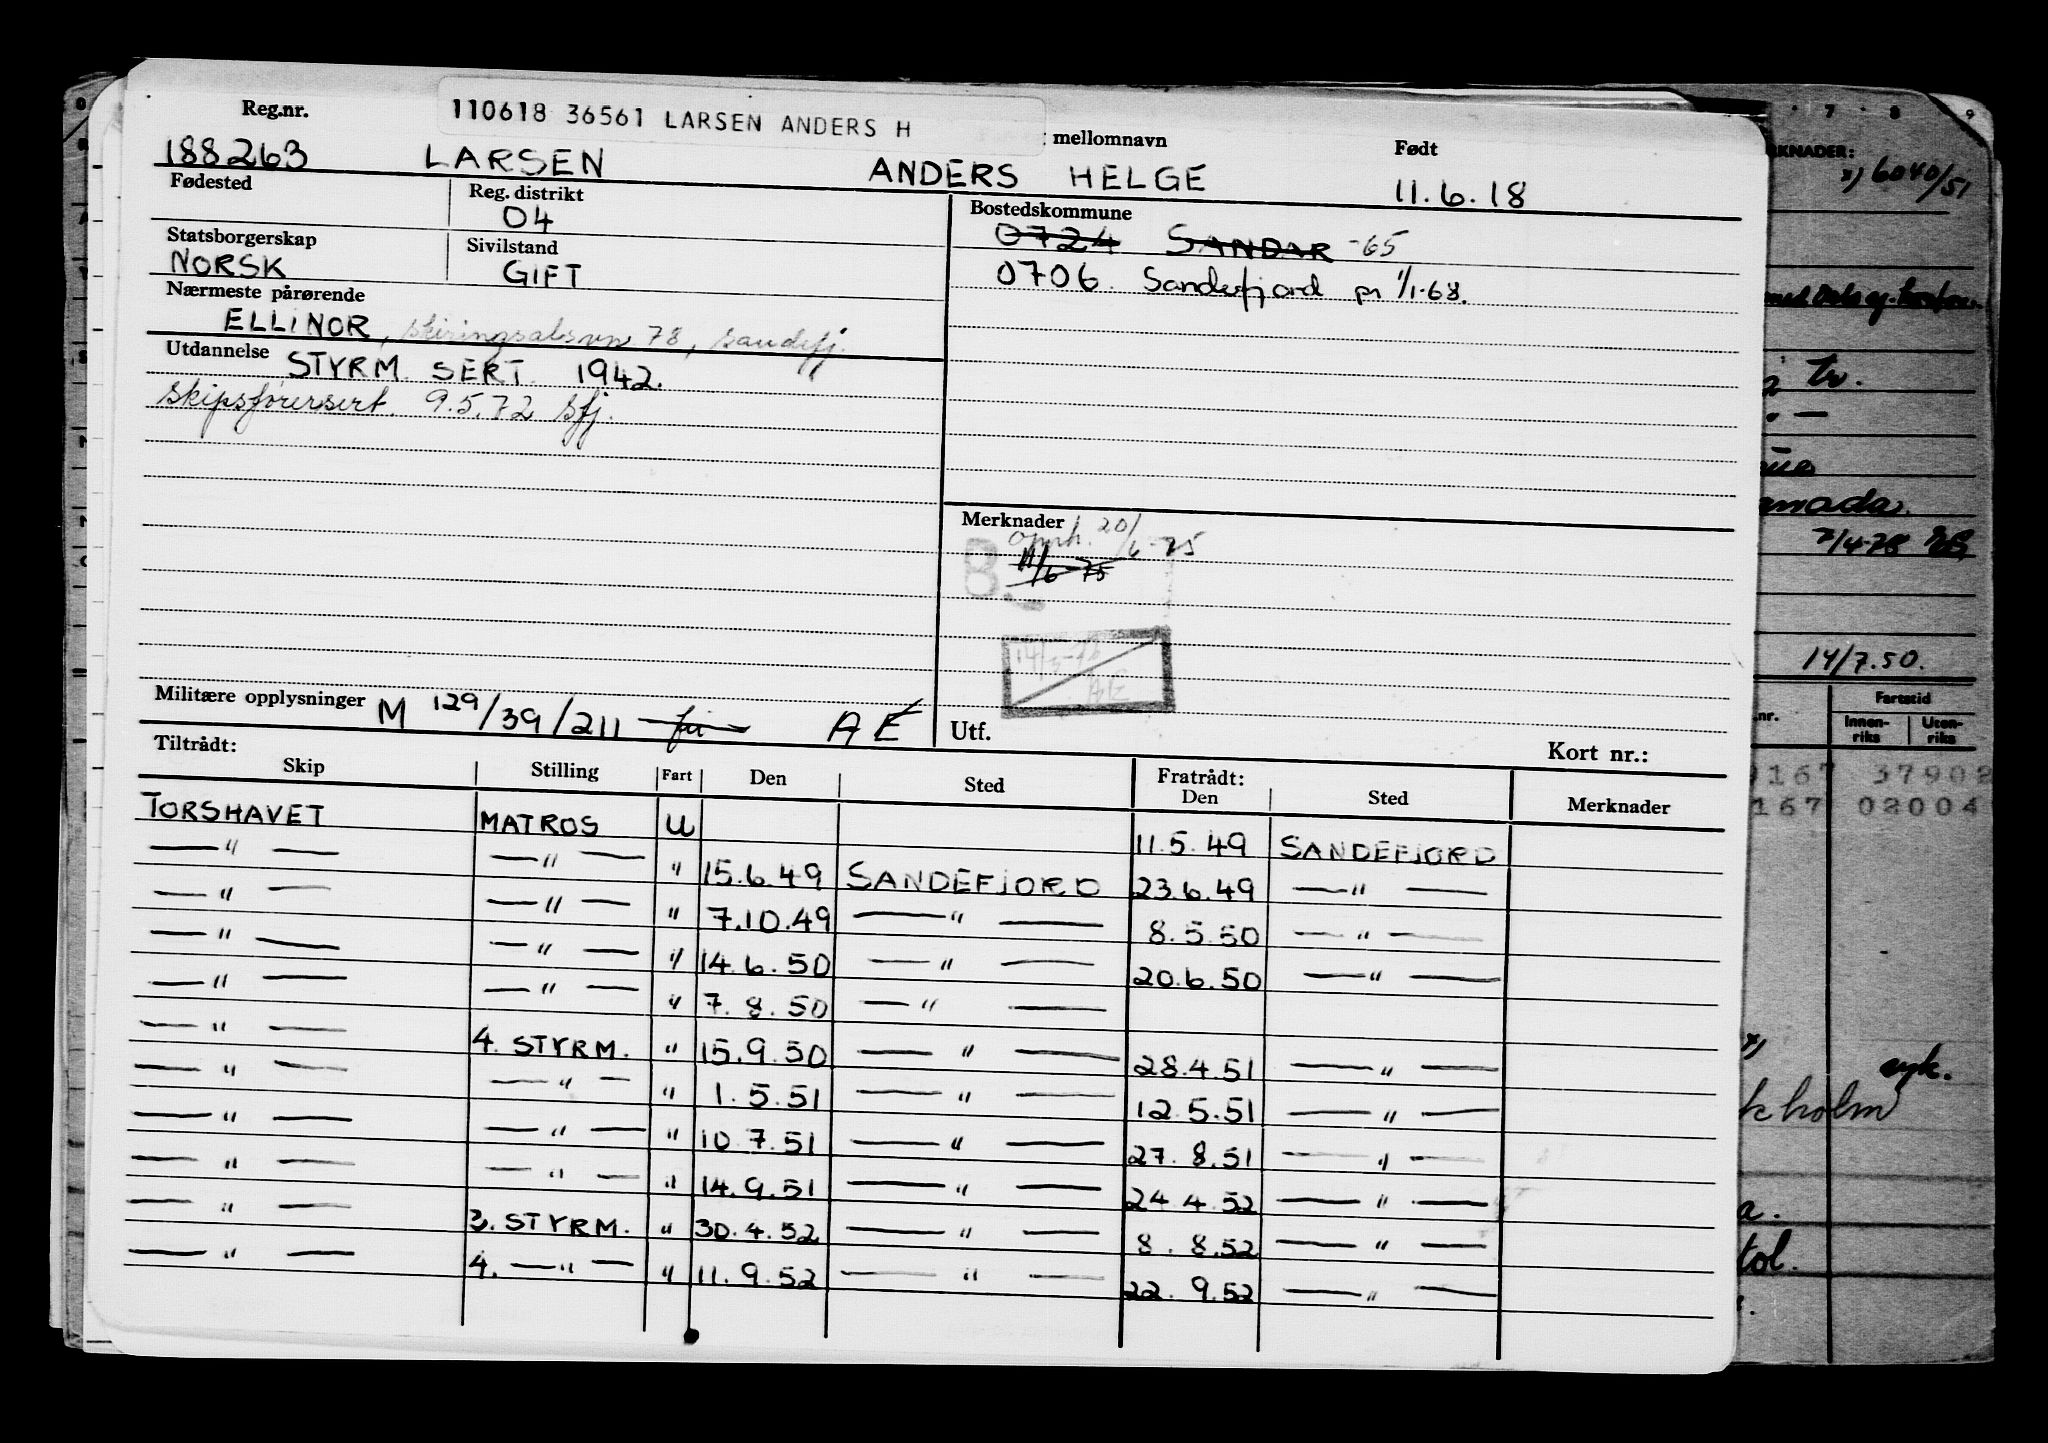 110618 36561 LARSEN ANDERS H
Reg.nr. mellomnavn Født
188263 LARSEN ANDERS HELGE 11.6.18
Fødested Reg. distrikt Bostedskommune
04 0724 SANDAR -65
Statsborgerskap Sivilstand
NORSK GIFT 0706. Sandefjord pr 1/1-68.
Nærmeste pårørende
ELLINOR, skiringsalsvn 78, Sandefj.
Utdannelse STYRM SERT. 1942.
Skipsførersert. 9.5.72 Sfj.
Merknader
opph. 20/6-75
11/6-75
Militære opplysninger M 129/39/211 AE Utf. Kort nr.:
Tiltrådt: Fratrådt:
Skip Stilling Fart Den Sted Den Sted Merknader
TORSHAVET MATROS U 11.5.49 SANDEFJORD
—"— —"— " 15.6.49 SANDEFJORD 23.6.49 —"—
—"— —"— " 7.10.49 —"— 8.5.50 —"—
—"— —"— " 14.6.50 —"— 20.6.50 —"—
—"— —"— " 7.8.50 —"—
—"— 4. STYRM. " 15.9.50 —"— 28.4.51 —"—
—"— —"— " 1.5.51 —"— 12.5.51 —"—
—"— —"— " 10.7.51 —"— 27.8.51 —"—
—"— —"— " 14.9.51 —"— 24.4.52 —"—
—"— 3. STYRM. " 30.4.52 —"— 8.8.52 —"—
—"— 4. —"— " 11.9.52 —"— 22.9.52 —"—
7 8 9
KNADER:
6040/51
tr.
—"—
nada.
7/4-78
14/7.50.
nr. Fartstid
Innen-riks Uten-riks
167 37902
167 02004
syk.
kholm
a.
tol.